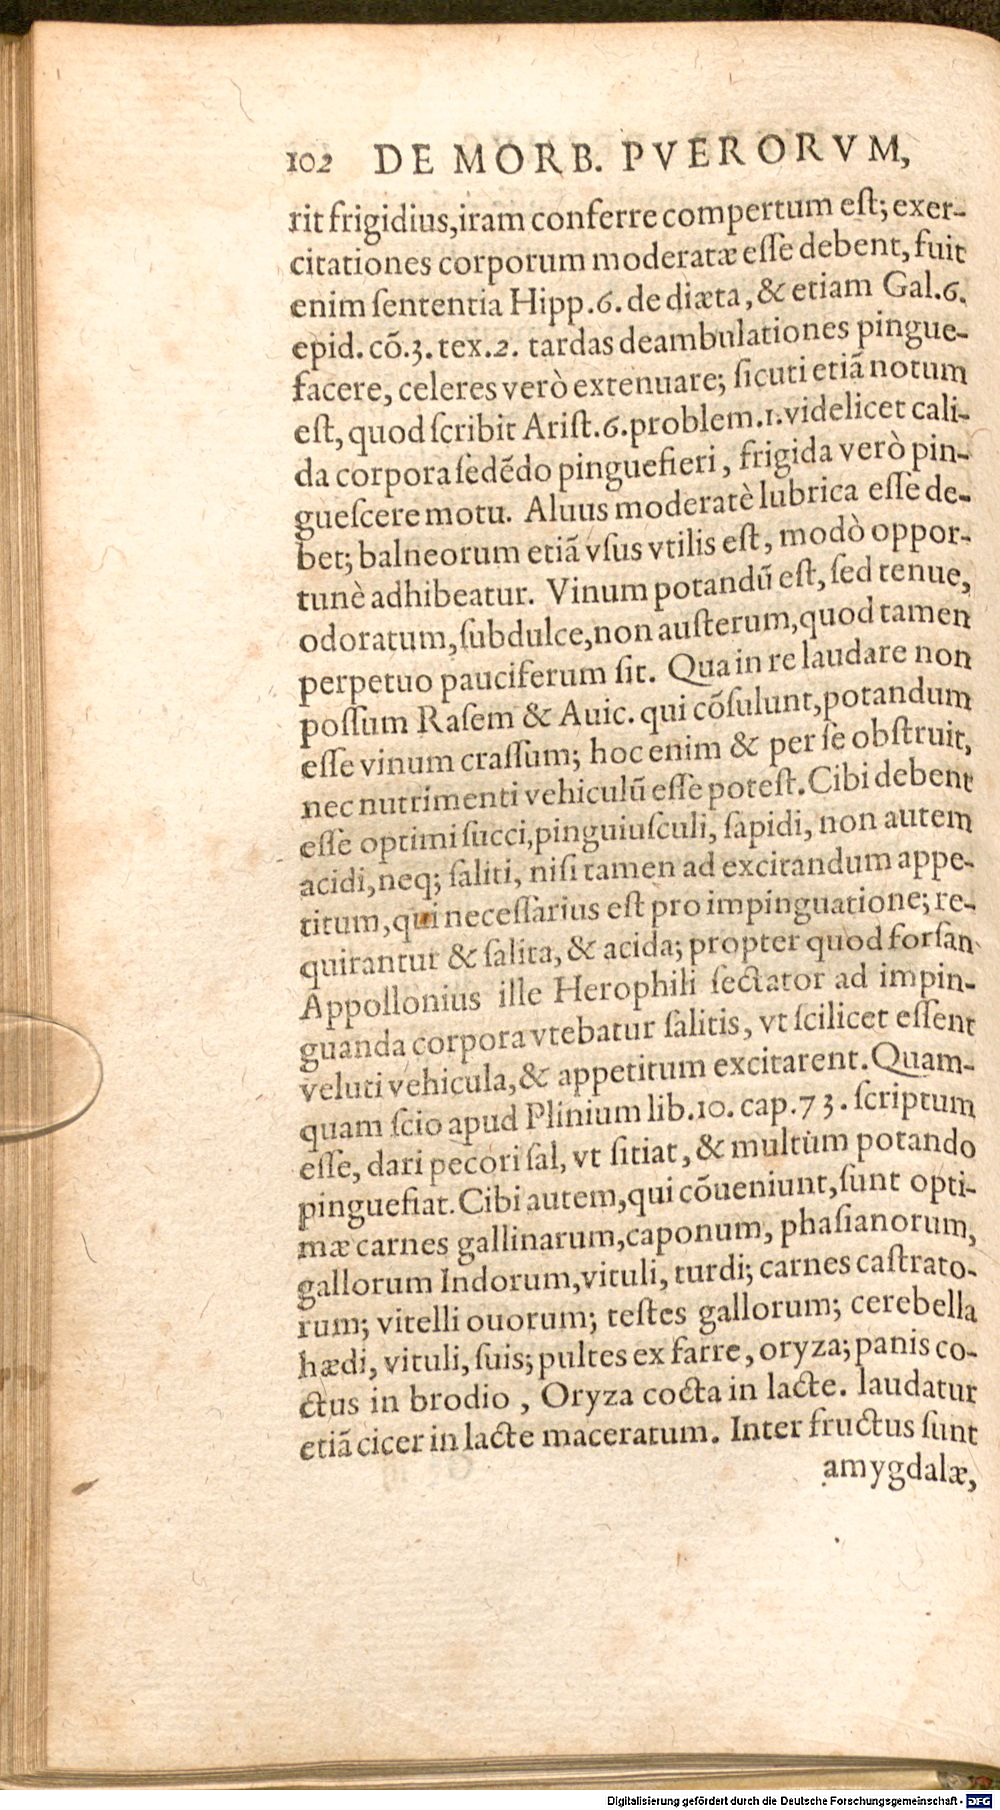 102 DE MORB. PVERORVM,
rit frigidius, iram conferre compertum eſt; exer-
citationes corporum moderatæ eſſe debent, fuit
enim ſententia Hipp. 6. de diæta, & etiam Gal. 6.
epid. cõ. 3. tex. 2. tardas deambulationes pingue-
facere, celeres verò extenuare; ſicuti etiã notum
eſt, quod ſcribit Ariſt. 6. problem. 1. videlicet cali-
da corpora ſedẽdo pinguefieri, frigida verò pin-
gueſcere motu. Aluus moderatè lubrica eſſe de-
bet; balneorum etiã vſus vtilis eſt, modò oppor-
tunè adhibeatur. Vinum potandũ eſt, ſed tenue,
odoratum, ſubdulce, non auſterum, quod tamen
perpetuo pauciferum ſit. Qua in re laudare non
poſſum Raſem & Auic. qui cõſulunt, potandum
eſſe vinum craſſum; hoc enim & per ſe obſtruit,
nec nutrimenti vehiculũ eſſe poteſt. Cibi debent
eſſe optimi ſucci, pinguiuſculi, ſapidi, non autem
acidi, neq; ſaliti, niſi tamen ad excitandum appe-
titum, qui neceſſarius eſt pro impinguatione; re-
quirantur & ſalita, & acida; propter quod forſan
Appollonius ille Herophili ſectator ad impin-
guanda corpora vtebatur ſalitis, vt ſcilicet eſſent
veluti vehicula, & appetitum excitarent. Quam-
quam ſcio apud Plinium lib. 10. cap. 73. ſcriptum
eſſe, dari pecori ſal, vt ſitiat, & multùm potando
pinguefiat. Cibi autem, qui cõueniunt, ſunt opti-
mæ carnes gallinarum, caponum, phaſianorum,
gallorum Indorum, vituli, turdi; carnes caſtrato-
rum; vitelli ouorum; teſtes gallorum; cerebella
hædi, vituli, ſuis; pultes ex farre, oryza; panis co-
ctus in brodio, Oryza cocta in lacte. laudatur
etiã cicer in lacte maceratum. Inter fructus ſunt
amygdalæ,
Digitalisierung gefördert durch die Deutsche Forschungsgemeinschaft - DFG